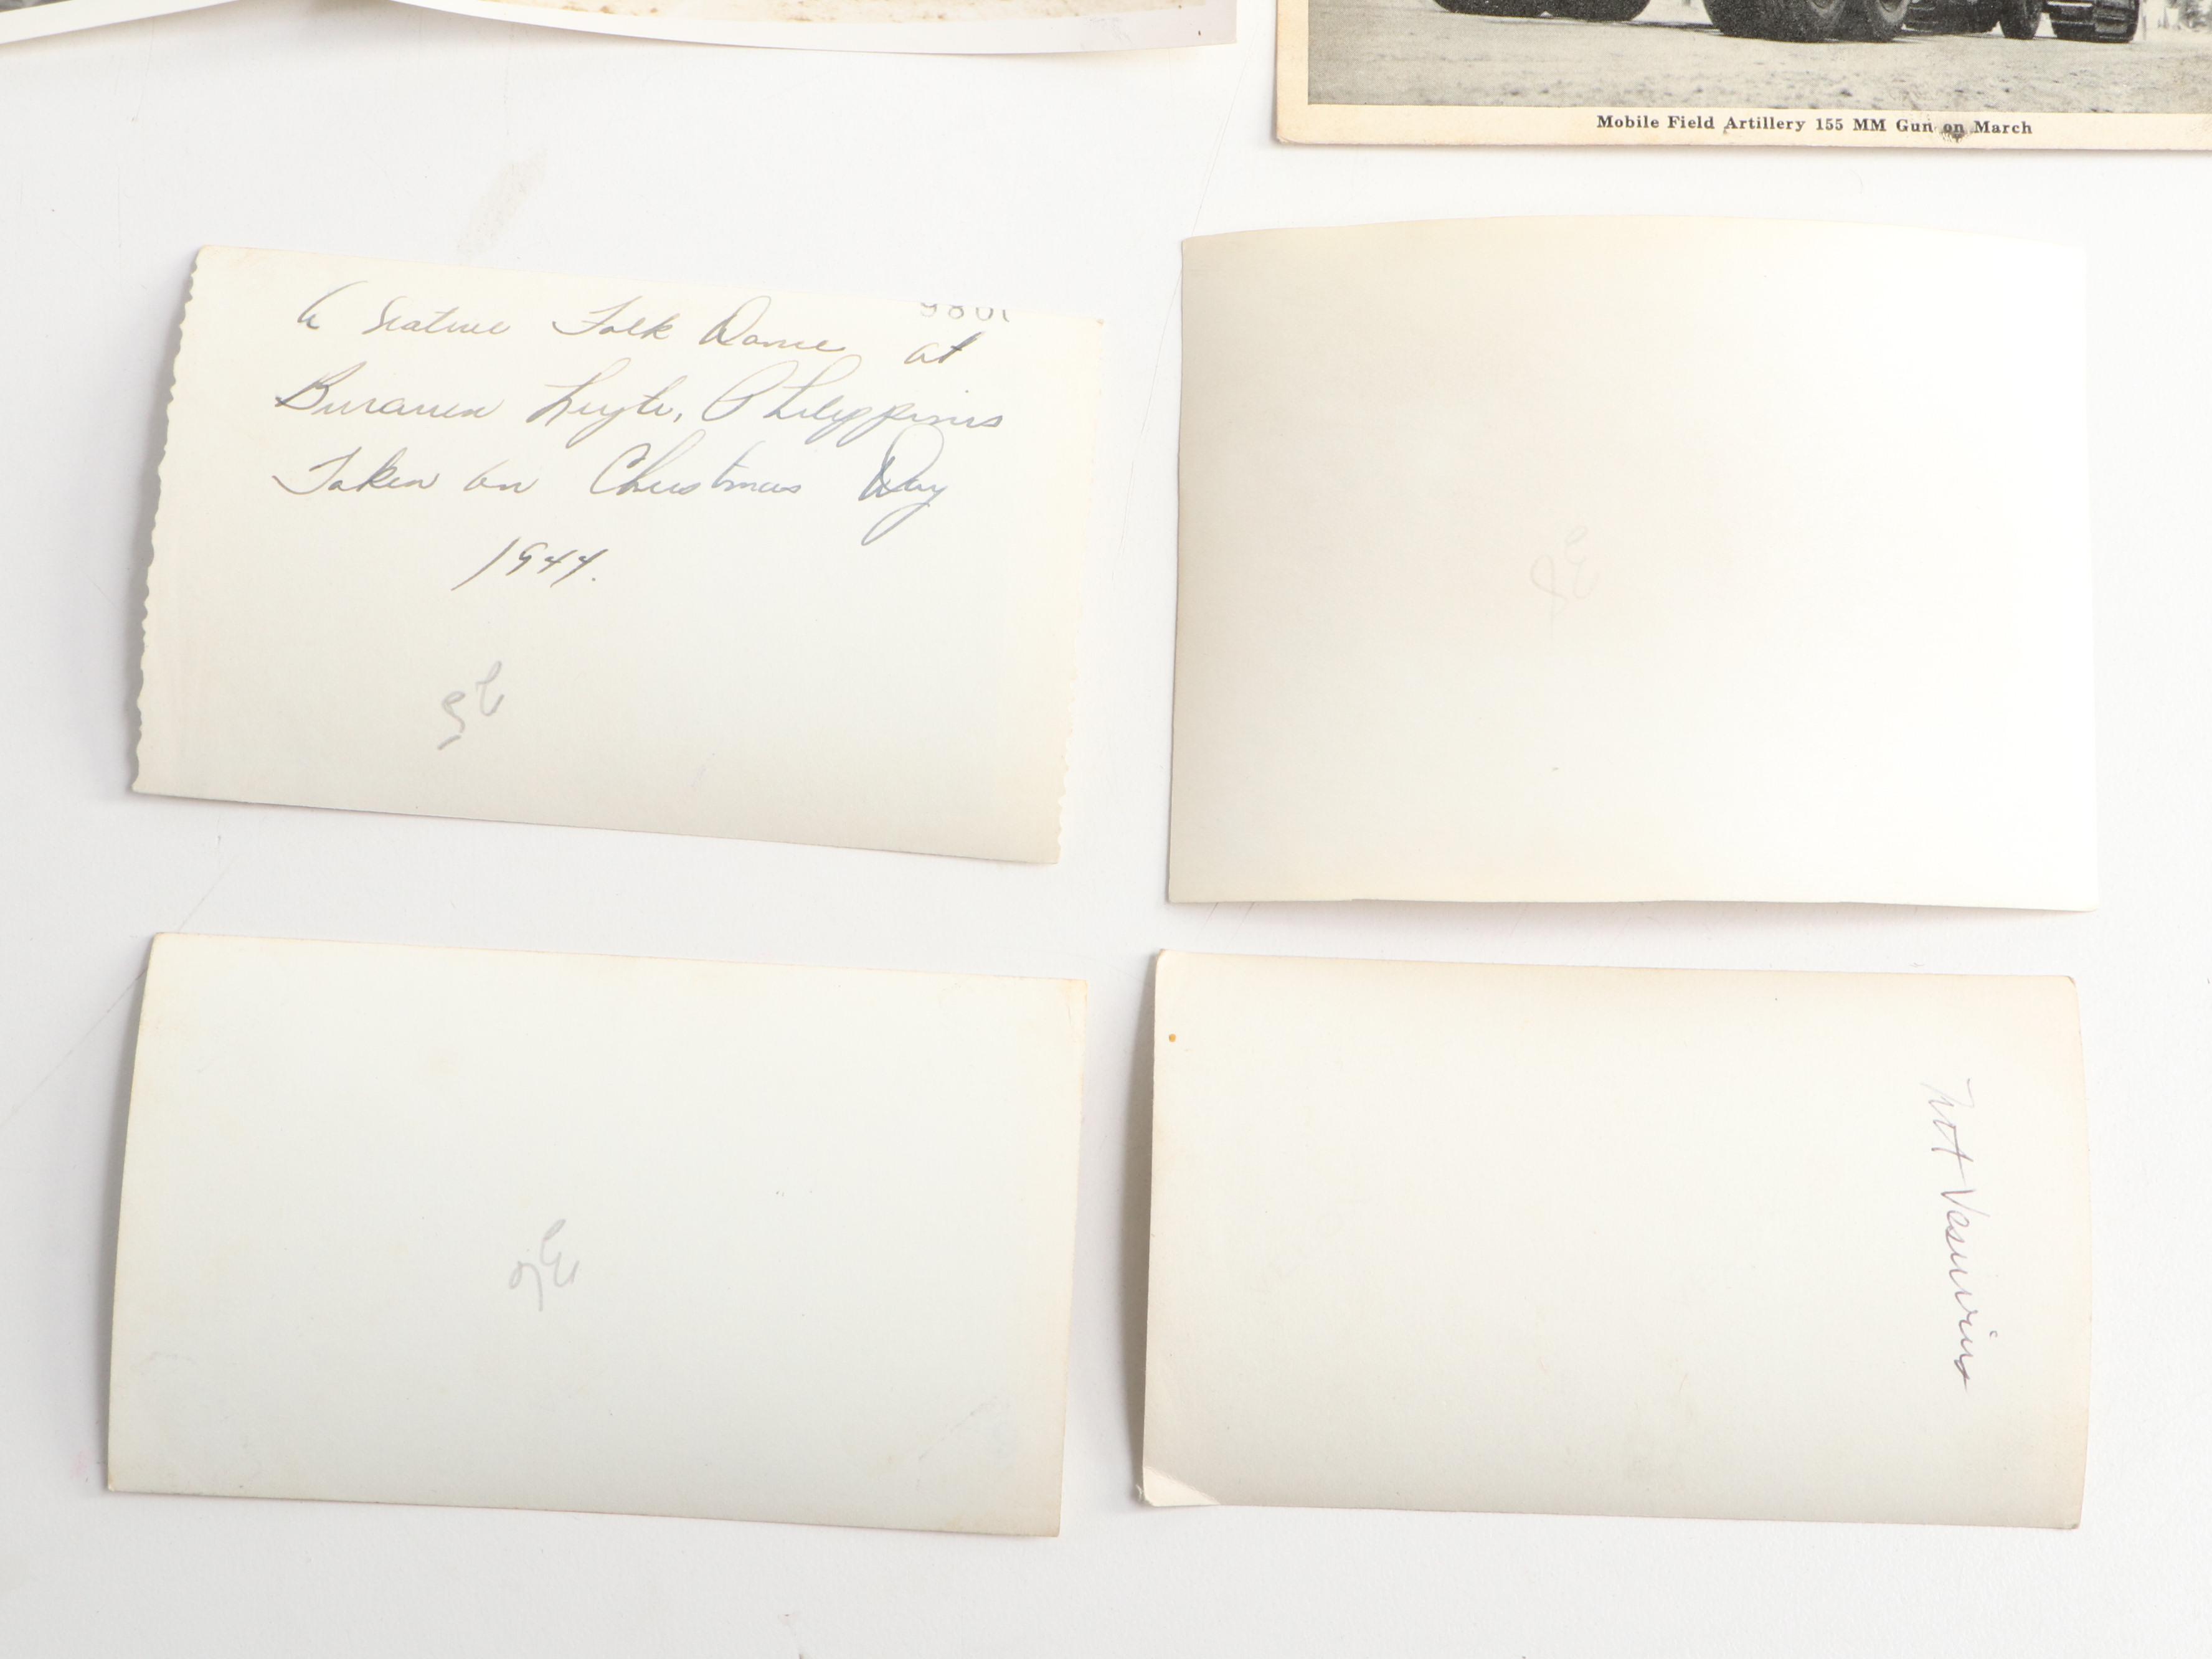 Mobile Field Artillery 155 MM Gun on March
A Native Folk Dance at
Burauen Leyte, Philippines
Taken on Christmas Day
1944.
Mt Vesuvius